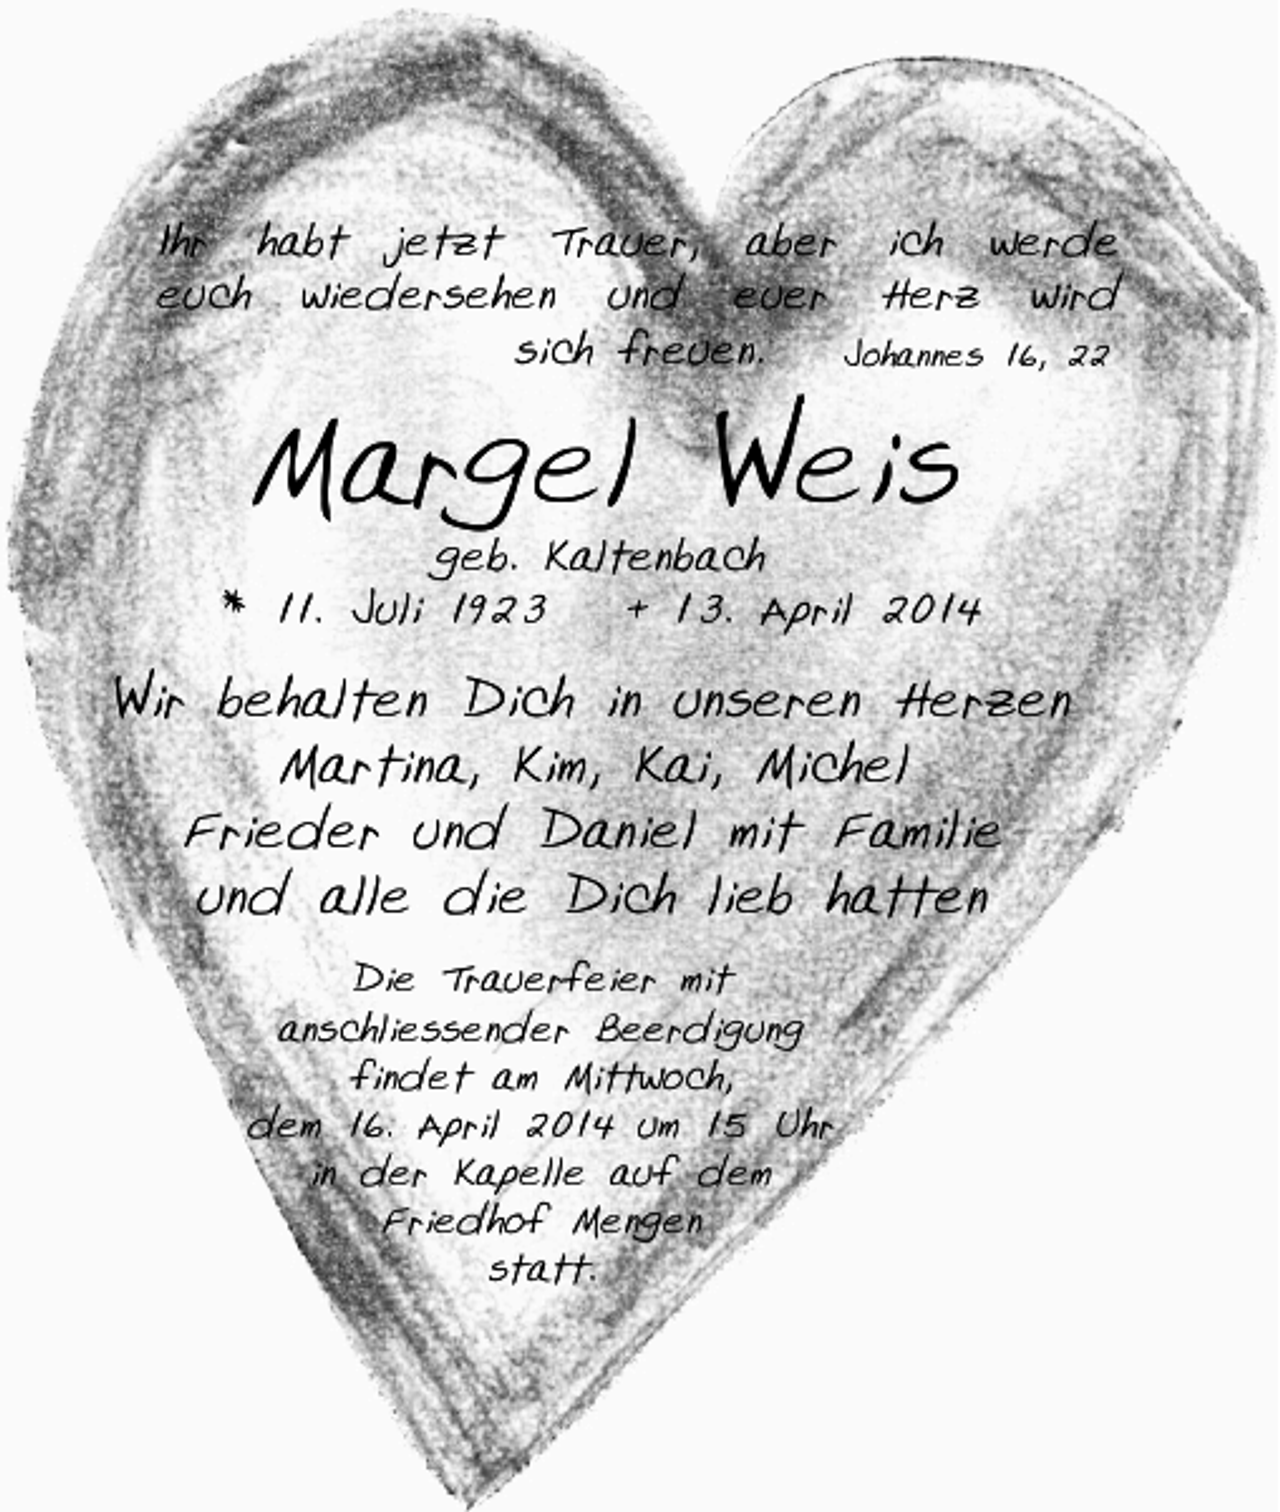 Ihr habt jetzt Trauer, aber ich werde
euch wiedersehen und euer Herz wird
sich freuen. Johannes 16, 22
Margel Weis
geb. Kaltenbach
* 11. Juli 1923 + 13. April 2014
Wir behalten Dich in unseren Herzen
Martina, Kim, Kai, Michel
Frieder und Daniel mit Familie
und alle die Dich lieb hatten
Die Trauerfeier mit
anschliessender Beerdigung
findet am Mittwoch,
dem 16. April 2014 um 15 Uhr
in der Kapelle auf dem
Friedhof Mengen
statt.